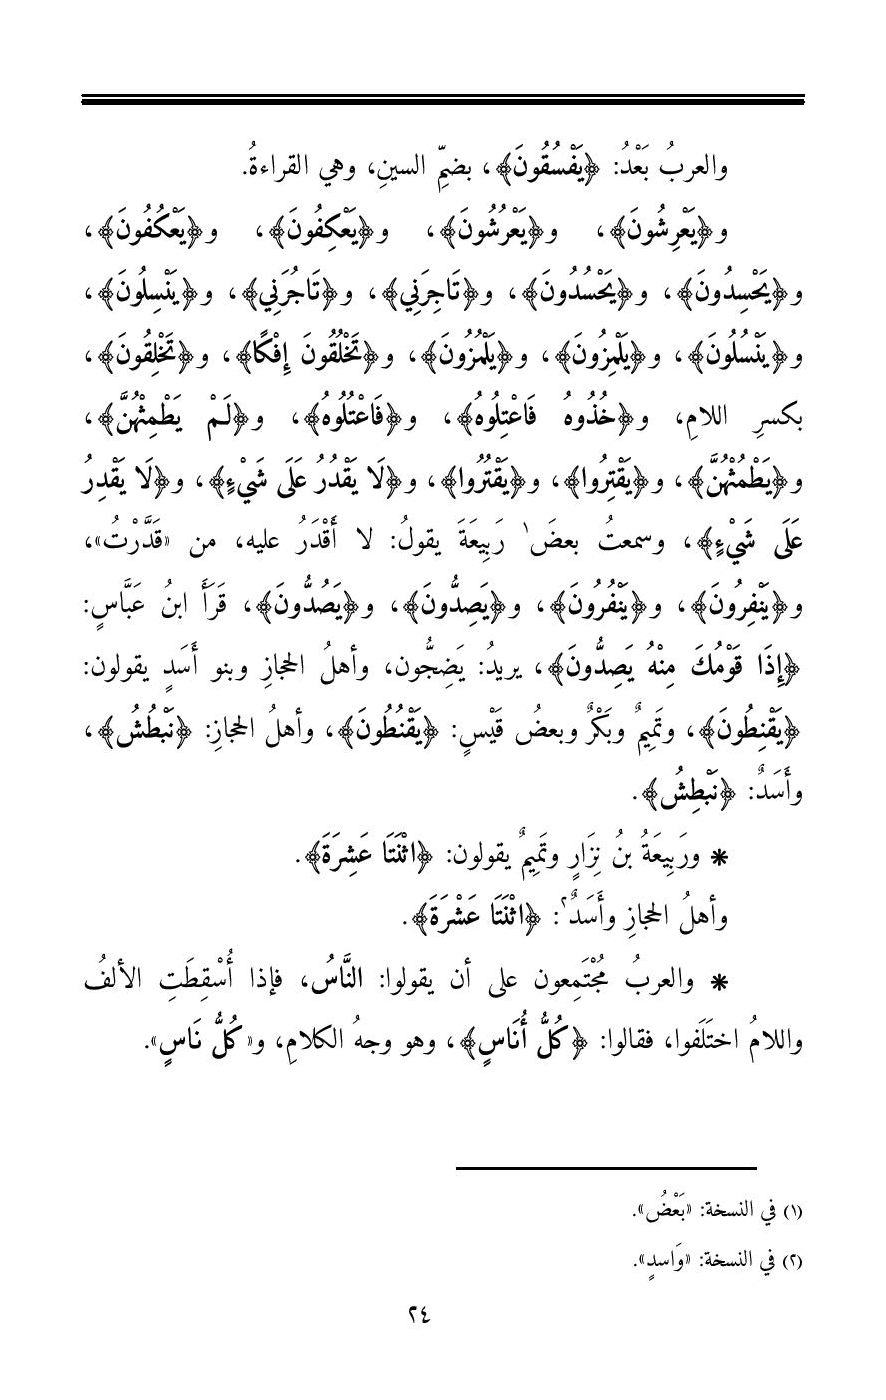 والعربُ بَعْدُ: ﴿يَفْسُقُونَ﴾، بضمِّ السينِ، وهي القراءةُ.
و﴿يَعْرِشُونَ﴾، و﴿يَعْرُشُونَ﴾، و﴿يَعْكِفُونَ﴾، و﴿يَعْكُفُونَ﴾،
و﴿يَحْسِدُونَ﴾، و﴿يَحْسُدُونَ﴾، و﴿تَاجِرَنِي﴾، و﴿تَاجُرَنِي﴾، و﴿يَنْسِلُونَ﴾،
و﴿يَنْسُلُونَ﴾، و﴿يَلْمِزُونَ﴾، و﴿يَلْمُزُونَ﴾، و﴿تَخْلُقُونَ إِفْكًا﴾، و﴿تَخْلِقُونَ﴾،
بكسرِ اللامِ، و﴿خُذُوهُ فَاعْتِلُوهُ﴾، و﴿فَاعْتُلُوهُ﴾، و﴿لَمْ يَطْمِثْهُنَّ﴾،
و﴿يَطْمُثْهُنَّ﴾، و﴿يَقْتِرُوا﴾، و﴿يَقْتُرُوا﴾، و﴿لَا يَقْدُرُ عَلَى شَيْءٍ﴾، و﴿لَا يَقْدِرُ
عَلَى شَيْءٍ﴾، وسمعتُ بعضَ١ رَبِيعَةَ يقولُ: لا أَقْدَرُ عليه، من «قَدَّرْتُ»،
و﴿يَنْفِرُونَ﴾، و﴿يَنْفُرُونَ﴾، و﴿يَصِدُّونَ﴾، و﴿يَصُدُّونَ﴾، قَرَأَ ابنُ عَبَّاسٍ:
﴿إِذَا قَوْمُكَ مِنْهُ يَصِدُّونَ﴾، يريدُ: يَضِجُّون، وأهلُ الحجازِ وبنو أَسَدٍ يقولون:
﴿يَقْنِطُونَ﴾، وتَمِيمٌ وبَكْرٌ وبعضُ قَيْسٍ: ﴿يَقْنُطُونَ﴾، وأهلُ الحجازِ: ﴿نَبْطُشُ﴾،
وأَسَدٌ: ﴿نَبْطِشُ﴾.
* ورَبِيعَةُ بنُ نِزَارٍ وتَمِيمٌ يقولون: ﴿اثْنَتَا عَشِرَةَ﴾.
وأهلُ الحجازِ وأَسَدٌ٢: ﴿اثْنَتَا عَشْرَةَ﴾.
* والعربُ مُجْتَمِعون على أن يقولوا: النَّاسُ، فإذا أُسْقِطَتِ الألفُ
واللامُ اختَلَفوا، فقالوا: ﴿كُلُّ أُنَاسٍ﴾، وهو وجهُ الكلامِ، و«كُلُّ نَاسٍ».
(١) في النسخة: «بَعْضُ».
(٢) في النسخة: «وَاسدٍ».
٢٤